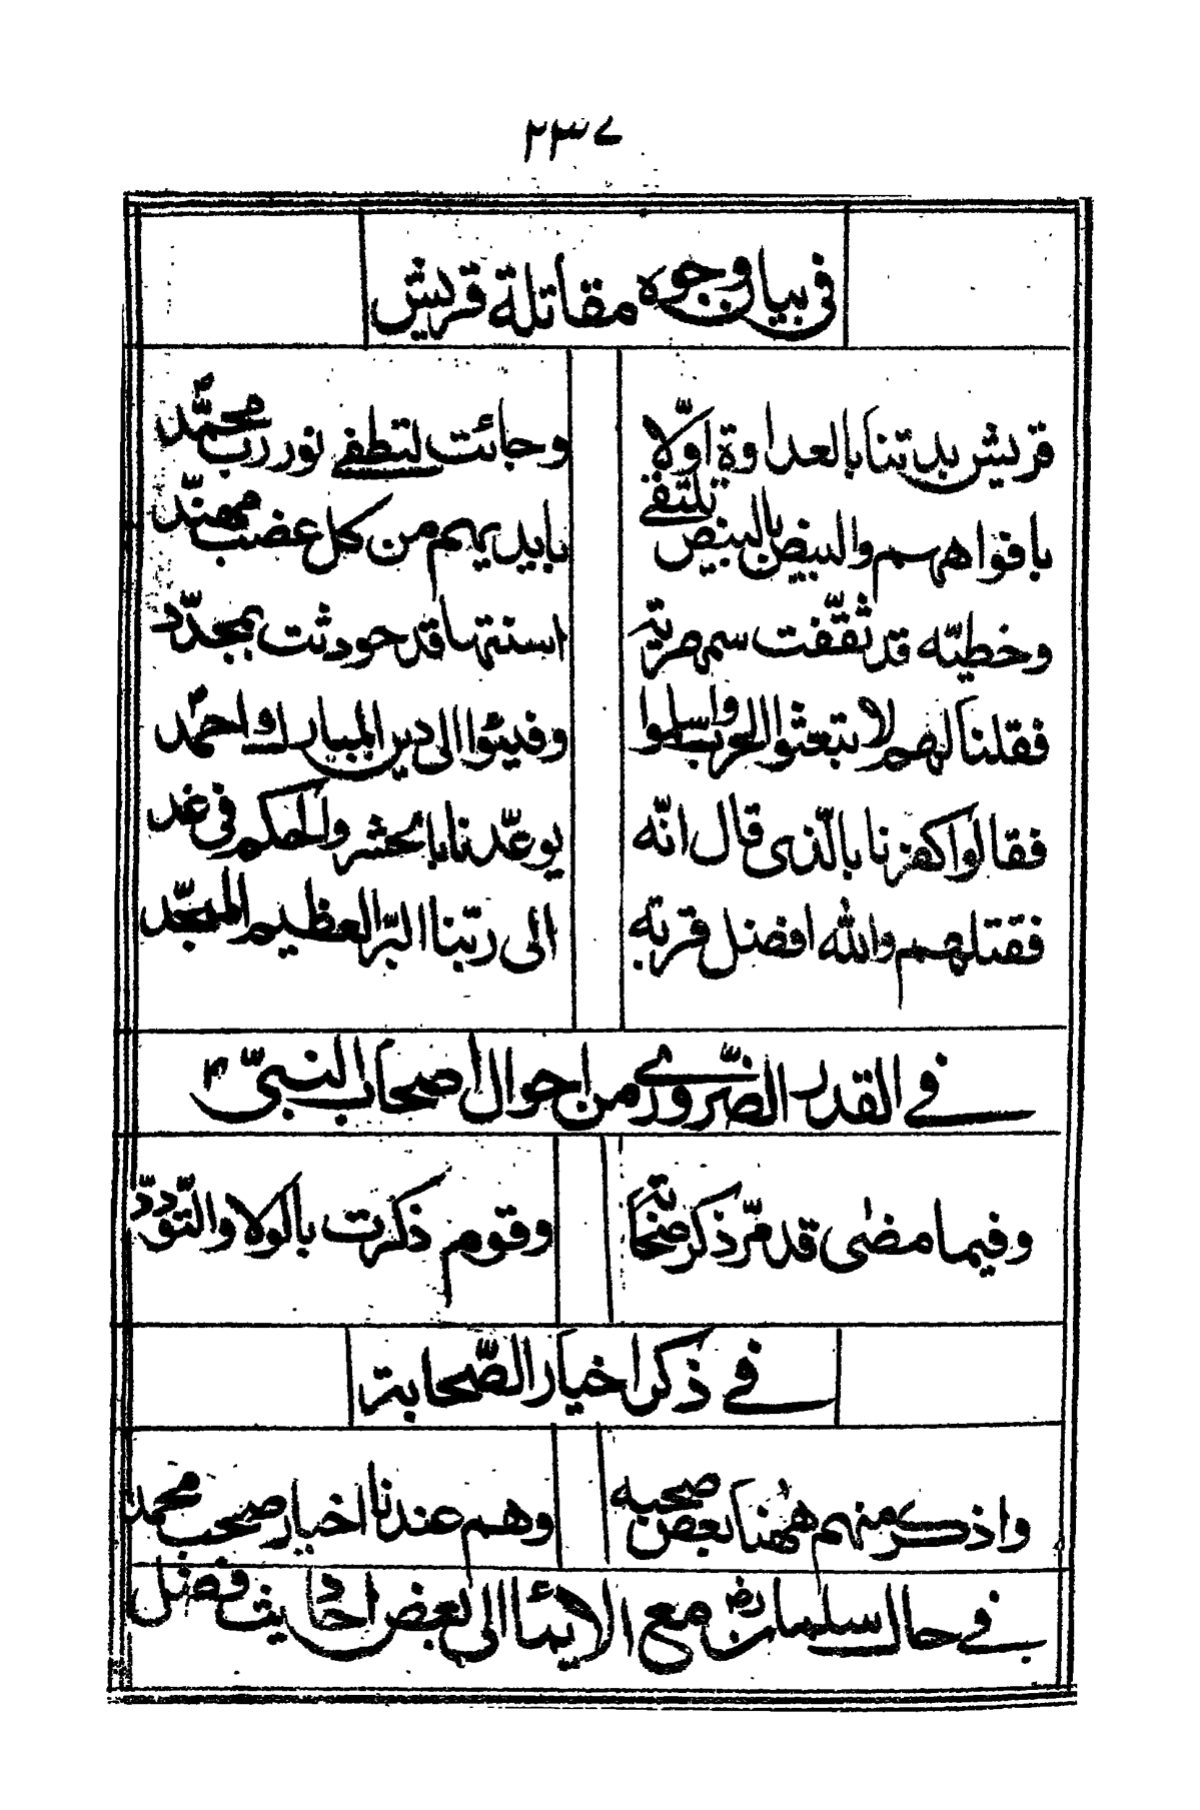 ٢٣٧
في بيان وجوه مقاتلة قريش
قريش بدتنا بالعداوة اوّلا وجائت لتطفي نور رب محمّد
بافواههم والبيض بالبيض تلتقي بايديهم من كل عضب مهنّد
وخطيّه قد ثقّفت سمهريّه اسنتها قد حودثت بمجدّد
فقلنا لهم لا تبعثوا الحرب واسلموا وفيئوا الى دين المبارك واحمد
فقالوا كفرنا بالّذى قال انّه يوعّدنا بالحشر والحكم في غد
فقتلهم والله افضل قربة الى ربّنا البرّ العظيم الممجّد
في القدر الضّروري من احوال اصحاب النبيّ ص
وفيما مضى قد مرّ ذكر وقوم ذكرت بالولا والتّودّد
في ذكر اخيار الصّحابة
واذكر منهم ههنا بعض صحبه وهم عندنا اخيار صحب محمد
في حال سلمان رض مع الايماء الى بعض احاديث فضل